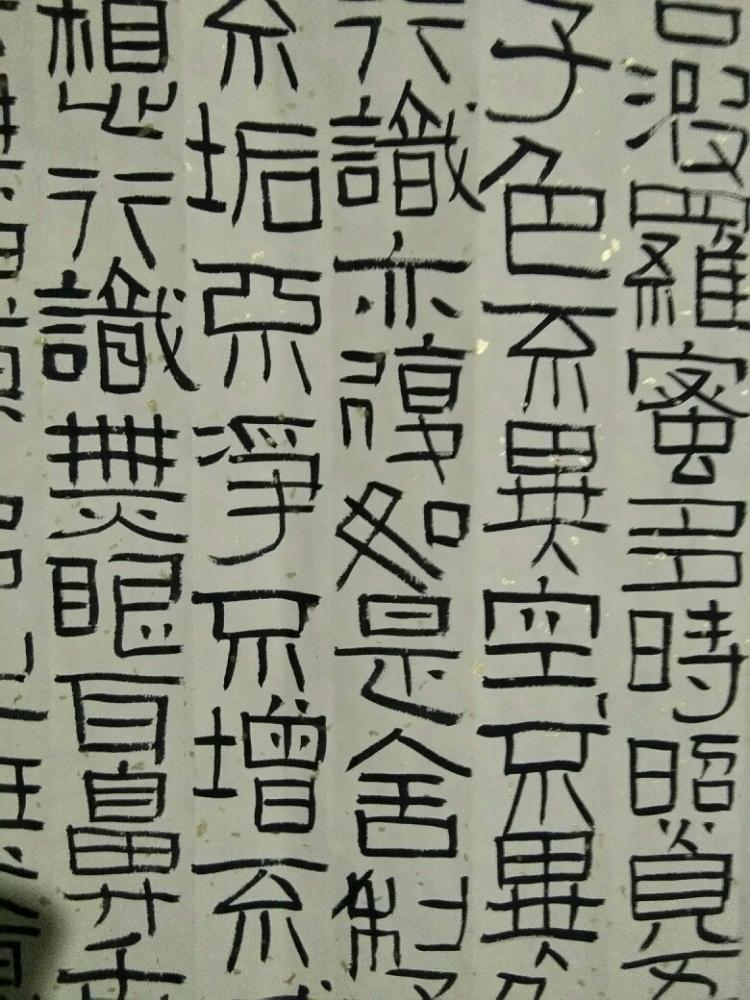 般波羅蜜多時照見五
子色不異空不異空
行識亦復如是舍利子
不垢不淨不增不
想行識無眼耳鼻舌